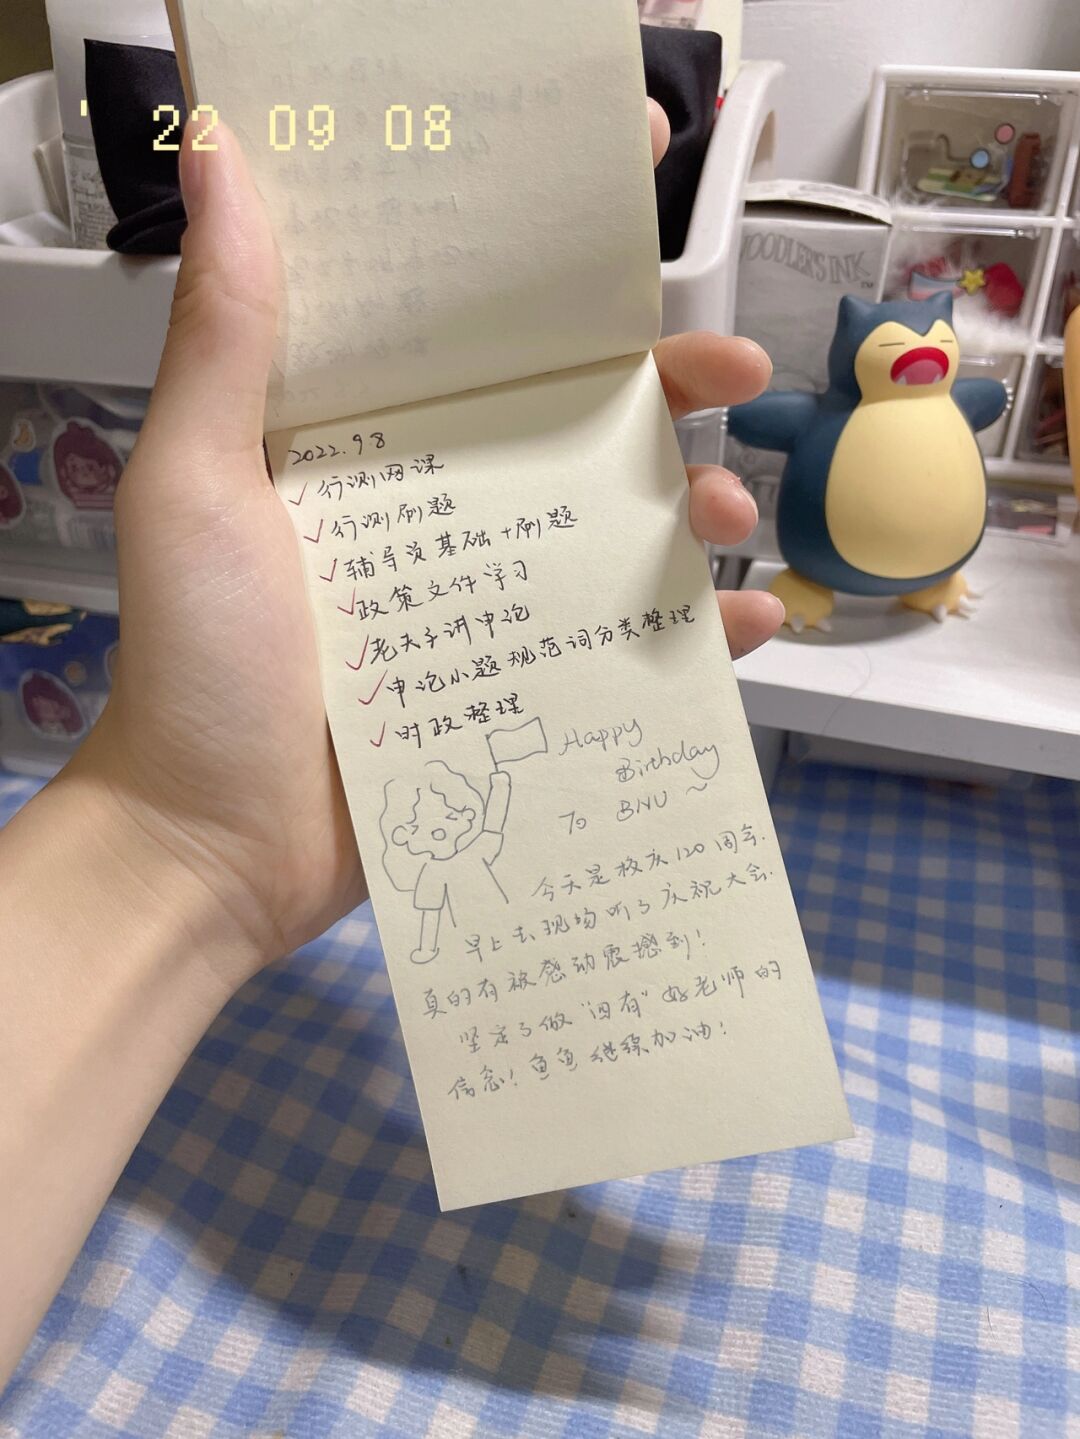 '22 09 08
NOODLER'S INK
TM
2022.9.8
✓行测网课
✓行测刷题
✓辅导员基础+刷题
✓政策文件学习
✓老夫子讲申论
✓申论小题规范词分类整理
✓时政整理
Happy
Birthday
To BNU ~
今天是校庆120周年.
早上去现场听了庆祝大会.
真的有被感动震撼到!
坚定了做"四有"好老师的
信念!鱼鱼继续加油!